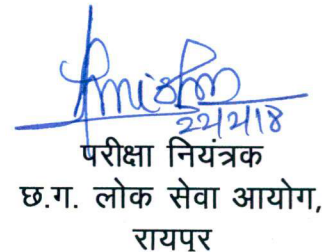 22/2/18
परीक्षा नियंत्रक
छ.ग. लोक सेवा आयोग,
रायपुर